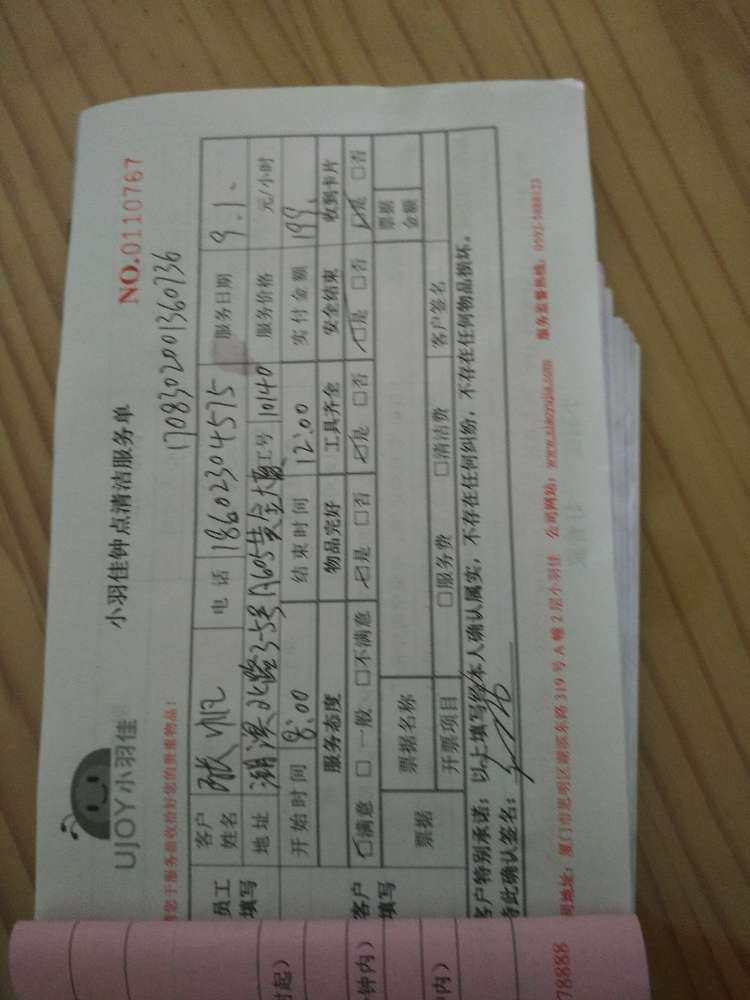 UJOY小羽佳
小羽佳钟点清洁服务单
NO.0110767
1708302001360736
客户姓名 张帆 电话 18602304575 服务日期 9.1.
员工填写
地址 湖滨北路 工号 10140 服务价格 元/小时
开始时间 8:00 结束时间 12:00 实付金额 199.
服务态度 物品完好 工具齐全 安全结束 收到卡片
客户填写
满意 一般 不满意 是 否 是 否 是 否 是 否
票据 票据名称 票据金额
开票项目 服务费 清洁费 客户签名
客户特别承诺：以上填写经本人确认属实，不存在任何纠纷，不存在任何物品损坏。
特此确认签名：
司地址：厦门市思明区湖滨东路319号A幢2层小羽佳 公司网站：www.xiaoyujia.com 服务监督热线：
78888
钟内）